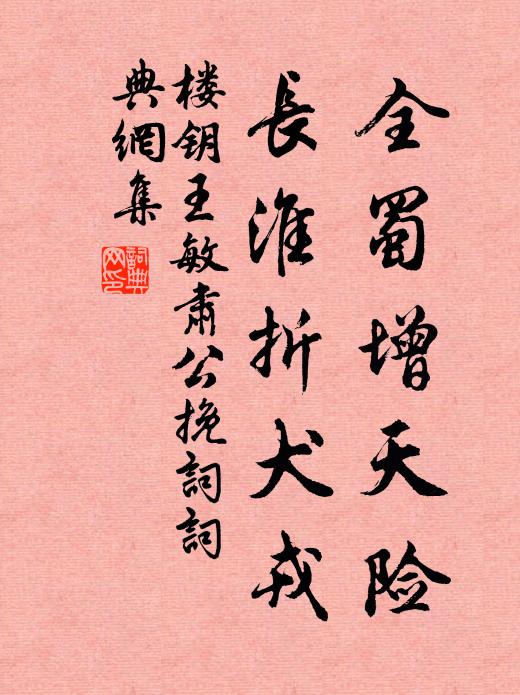 全蜀增天险
長淮折犬戎
楼钥王敏肃公挽詞詞
典網集
詞典网印